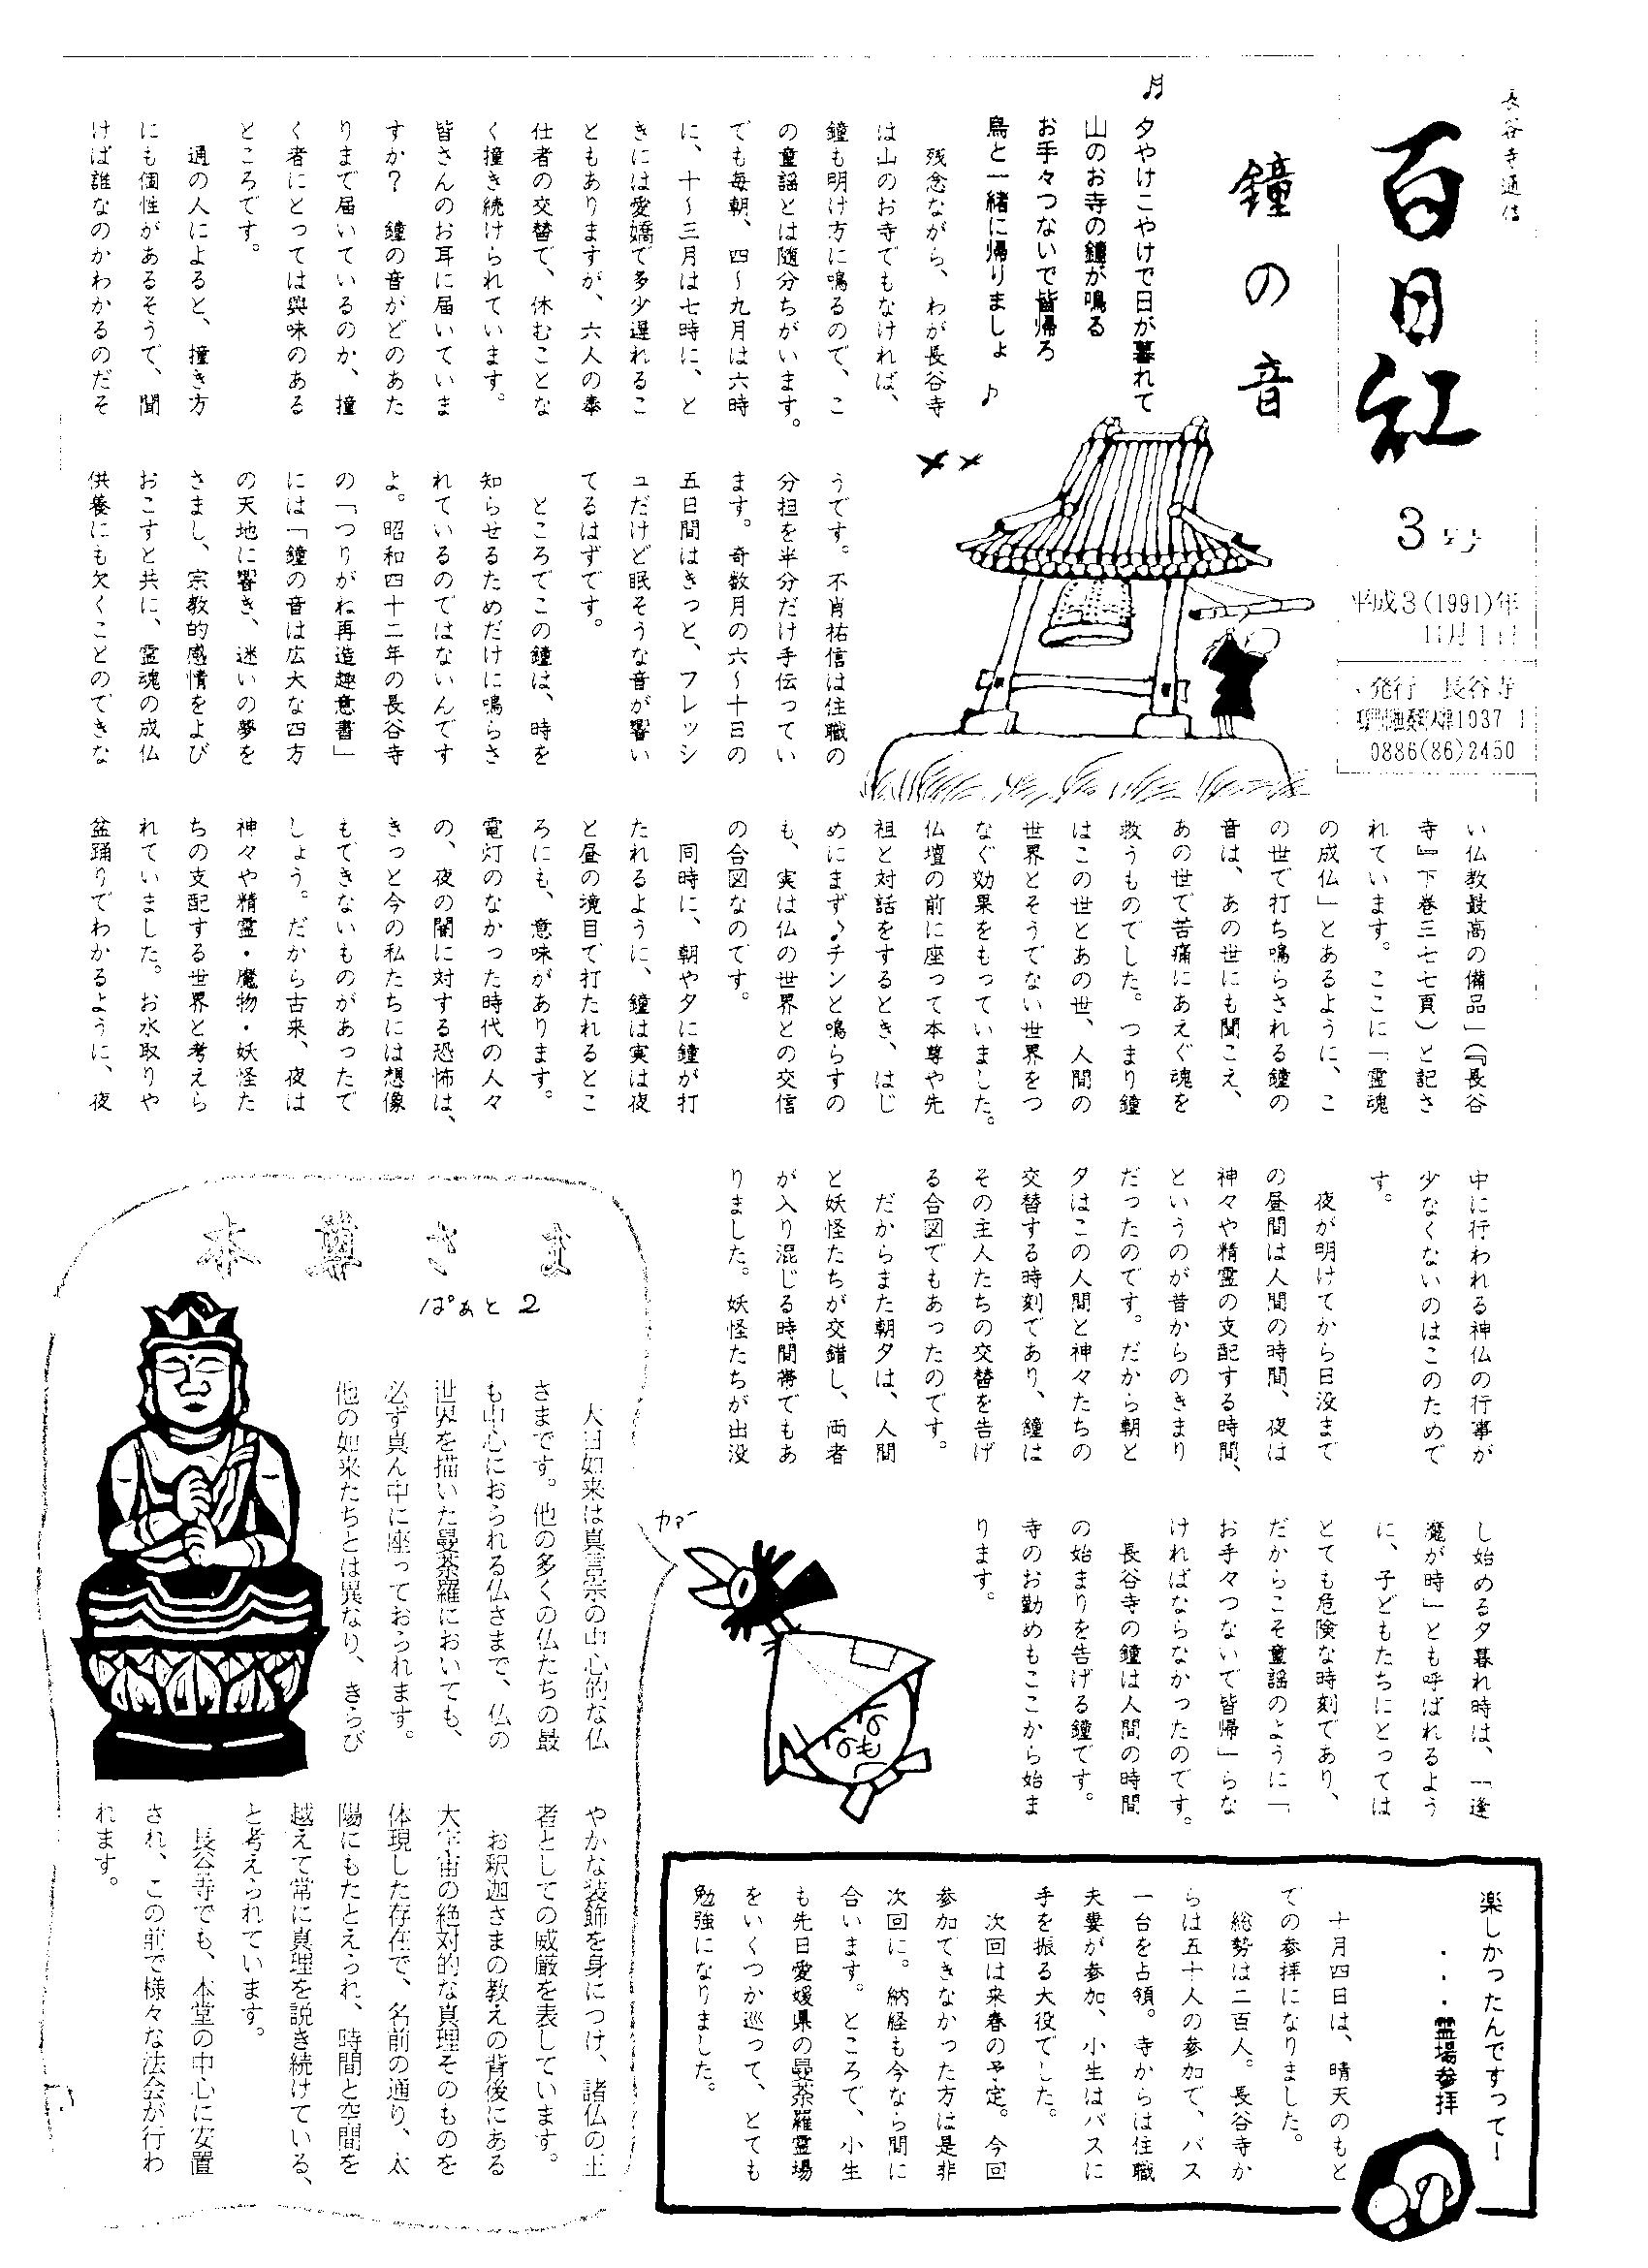 長谷寺通信
百日紅
3号
平成3(1991)年
11月1日
発行 長谷寺
0886(86)2450
鐘の音
♬ 夕やけこやけで日が暮れて
山のお寺の鐘が鳴る
お手々つないで皆帰ろ
烏と一緒に帰りましょ ♪
残念ながら、わが長谷寺
は山のお寺でもなければ、
鐘も明け方に鳴るので、こ
の童謡とは随分ちがいます。
でも毎朝、四〜九月は六時
に、十〜三月は七時に、と
きには愛嬌で多少遅れるこ
ともありますが、六人の奉
仕者の交替で、休むことな
く撞き続けられています。
皆さんのお耳に届いていま
すか? 鐘の音がどのあた
りまで届いているのか、撞
く者にとっては興味のある
ところです。
通の人によると、撞き方
にも個性があるそうで、聞
けば誰なのかわかるのだそ
うです。不肖祐信は住職の
分担を半分だけ手伝ってい
ます。奇数月の六〜十日の
五日間はきっと、フレッシ
ュだけど眠そうな音が響い
てるはずです。
ところでこの鐘は、時を
知らせるためだけに鳴らさ
れているのではないんです
よ。昭和四十二年の長谷寺
の「つりがね再造趣意書」
には「鐘の音は広大な四方
の天地に響き、迷いの夢を
さまし、宗教的感情をよび
おこすと共に、霊魂の成仏
供養にも欠くことのできな
い仏教最高の備品」(『長谷
寺』下巻三七七頁)と記さ
れています。ここに「霊魂
の成仏」とあるように、こ
の世で打ち鳴らされる鐘の
音は、あの世にも聞こえ、
あの世で苦痛にあえぐ魂を
救うものでした。つまり鐘
はこの世とあの世、人間の
世界とそうでない世界をつ
なぐ効果をもっていました。
仏壇の前に座って本尊や先
祖と対話をするとき、はじ
めにまず♪チンと鳴らすの
も、実は仏の世界との交信
の合図なのです。
同時に、朝や夕に鐘が打
たれるように、鐘は実は夜
と昼の境目で打たれるとこ
ろにも、意味があります。
電灯のなかった時代の人々
の、夜の闇に対する恐怖は、
きっと今の私たちには想像
もできないものがあったで
しょう。だから古来、夜は
神々や精霊・魔物・妖怪た
ちの支配する世界と考えら
れていました。お水取りや
盆踊りでわかるように、夜
中に行われる神仏の行事が
少なくないのはこのためで
す。
夜が明けてから日没まで
の昼間は人間の時間、夜は
神々や精霊の支配する時間、
というのが昔からのきまり
だったのです。だから朝と
夕はこの人間と神々たちの
交替する時刻であり、鐘は
その主人たちの交替を告げ
る合図でもあったのです。
だからまた朝夕は、人間
と妖怪たちが交錯し、両者
が入り混じる時間帯でもあ
りました。妖怪たちが出没
し始める夕暮れ時は、「逢
魔が時」とも呼ばれるよう
に、子どもたちにとっては
とても危険な時刻であり、
だからこそ童謡のように「
お手々つないで皆帰」らな
ければならなかったのです。
長谷寺の鐘は人間の時間
の始まりを告げる鐘です。
寺のお勤めもここから始ま
ります。
カァー
へのへのもへ
本尊さま
ぱぁと2
大日如来は真言宗の中心的な仏
さまです。他の多くの仏たちの最
も中心におられる仏さまで、仏の
世界を描いた曼荼羅においても、
必ず真ん中に座っておられます。
他の如来たちとは異なり、きらび
やかな装飾を身につけ、諸仏の王
者としての威厳を表しています。
お釈迦さまの教えの背後にある
大宇宙の絶対的な真理そのものを
体現した存在で、名前の通り、太
陽にもたとえられ、時間と空間を
越えて常に真理を説き続けている、
と考えられています。
長谷寺でも、本堂の中心に安置
され、この前で様々な法会が行わ
れます。
楽しかったんですって!
・・・霊場参拝
十月四日は、晴天のもと
での参拝になりました。
総勢は二百人。長谷寺か
らは五十人の参加で、バス
一台を占領。寺からは住職
夫妻が参加、小生はバスに
手を振る大役でした。
次回は来春の予定。今回
参加できなかった方は是非
次回に。納経も今なら間に
合います。ところで、小生
も先日愛媛県の曼荼羅霊場
をいくつか巡って、とても
勉強になりました。